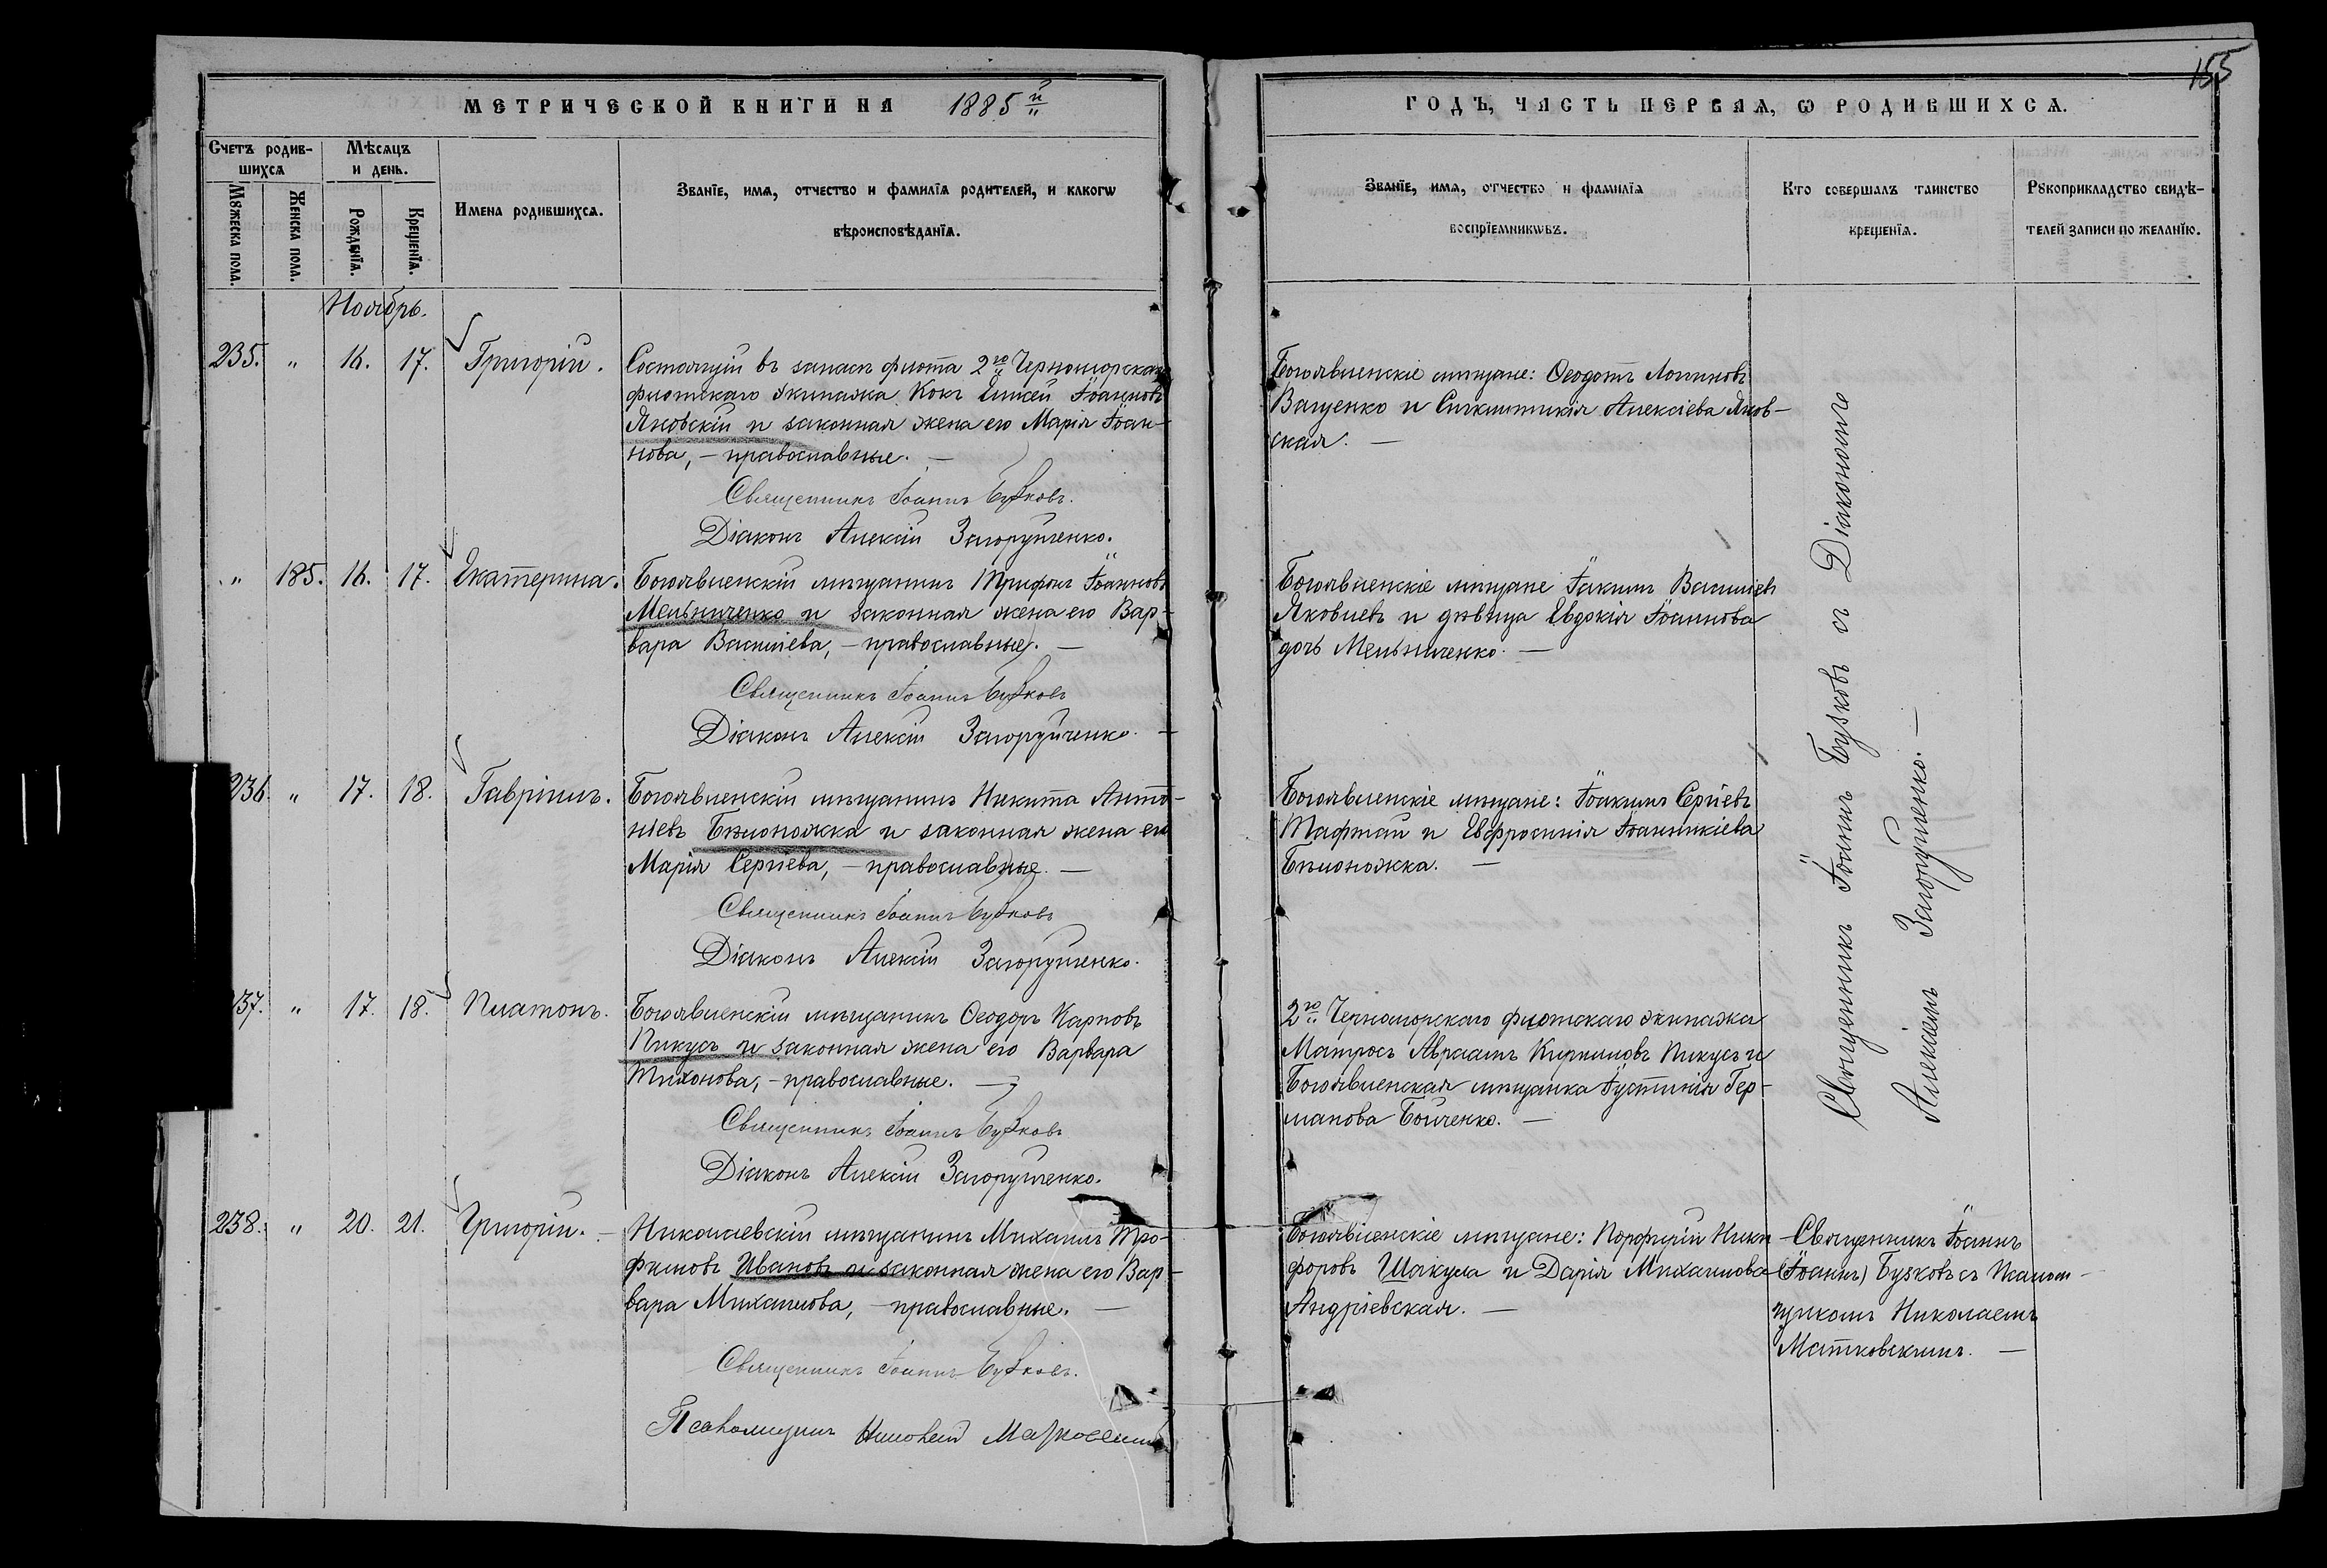 155
МЕТРИЧЕСКОЙ КНИГИ НА 1885й
ГОДЪ, ЧАСТЬ ПЕРВАЯ, Ѡ РОДИВШИХСѦ.
Счетъ родив-
шихсѧ
Мѣсѧцъ
и день.
Мꙋжеска пола.
Женска пола.
Рожденїѧ.
Крещенїѧ.
Имена родившихсѧ.
Званїе, имѧ, отчество и фамилїѧ родителей, и какогѡ
вѣроисповѣданїѧ.
Званїе, имѧ, отчество и фамилїѧ
воспрїемникѡвъ.
Кто совершалъ таинство
крещенїѧ.
Рꙋкоприкладство свидѣ-
телей записи по желанїю.
Ноябрь.
235. " 16. 17. Григорій.
Состоящій въ запасѣ флота 2го Черноморскаго
флотскаго экипажа Кокъ Іоанновъ
Яновскій и законная жена его Марія Іоан-
нова, – православные. –
Священникъ Іоаннъ Бузковъ.
Діаконъ Алексій Загоруйченко.
Богоявленскіе мѣщане: Ѳеодотъ Логиновъ
Ващенко и Синклитикія Алексіева Янов-
ская. –
" 185. 16. 17. Екатерина.
Богоявленскій мѣщанинъ Трифонъ Іоанновъ
Мельниченко и законная жена его Вар-
вара Василіева, – православные. –
Священникъ Іоаннъ Бузковъ
Діаконъ Алексій Загоруйченко. –
Богоявленскіе мѣщане Іакимъ Василіевъ
Яковлевъ и дѣвица Евдокія Іоаннова
дочь Мельниченко. –
236. " 17. 18. Гавріилъ.
Богоявленскій мѣщанинъ Никита Анто-
ніевъ Бѣлоножка и законная жена его
Марія Сергіева, – православные. –
Священникъ Іоаннъ Бузковъ
Діаконъ Алексій Загоруйченко.
Богоявленскіе мѣщане: Іоакимъ Сергіевъ
Тафтай и Евфросинія Іоанникіева
Бѣлоножка. –
237. " 17. 18. Платонъ.
Богоявленскій мѣщанинъ Ѳеодоръ Карповъ
Пикусъ и законная жена его Варвара
Тихонова, – православные. –
Священникъ Іоаннъ Бузковъ
Діаконъ Алексій Загоруйченко.
2го Черноморскаго флотскаго экипажа
Матросъ Авраамъ Кирилловъ Пикусъ и
Богоявленская мѣщанка Іустинія Гер-
манова Бойченко. –
Священникъ Іоаннъ Бузковъ съ Діакономъ
Алексіемъ Загоруйченко. –
238. " 20. 21. Григорій. –
Николаевскій мѣщанинъ Михаилъ Тро-
фимовъ Ивановъ и законная жена его Вар-
вара Михаилова, – православные. –
Священникъ Іоаннъ Бузковъ.
Псаломщикъ Николай Матковскій
Богоявленскіе мѣщане: Порфирій Ники-
форовъ Шакула и Дарія Михаилова
Андріевская. –
Священникъ Іоаннъ
(Іоаннъ) Бузковъ съ Псалом-
щикомъ Николаемъ
Матковскимъ. –